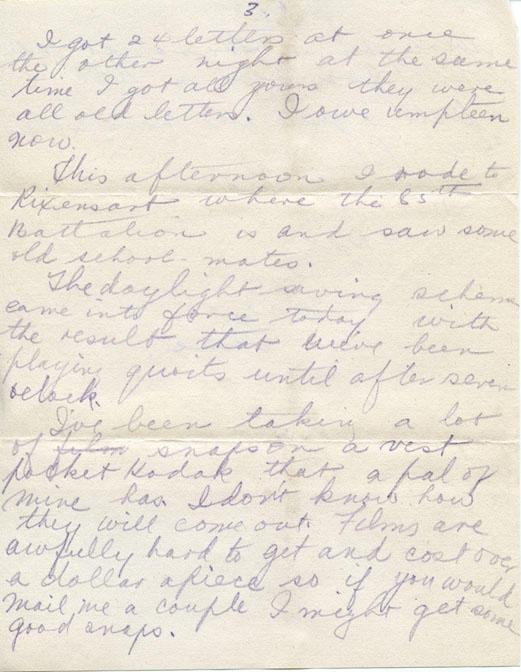 3.
I got 24 letters at once
the other night at the same
time I got all yours they were
all old letters. I owe umpteen
now.
This afternoon I rode to
Rixensart where the 85th
Battalion is and saw some
old school-mates.
The daylight saving scheme
came into force today with
the result that we've been
playing quoits until after seven
oclock.
I've been taking a lot
of film snaps on a vest
pocket Kodak that a pal of
mine has. I don't know how
they will come out. Films are
awfully hard to get and cost over
a dollar apiece so if you would
mail me a couple I might get some
good snaps.